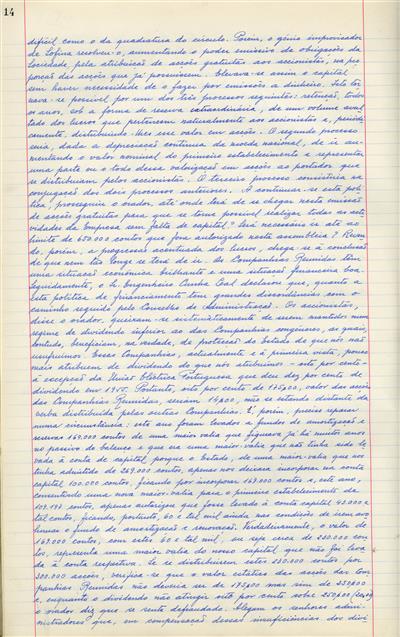 14
difícil como o da quadratura do circulo. Porém, o génio improvisador
de Sofina resolveu-o, aumentando o poder emissivo de obrigações da
Sociedade pela atribuição de acções gratuitas aos accionistas, na pro-
porção das acções que já possuissem. Elevava-se assim o capital
sem haver necessidade de o fazer por emissões a dinheiro. Isto tor
nava-se possível por um dos três processos seguintes: retenção, todos
os anos, sob a forma de reserva extraordinária, de um volume avul
tado dos lucros que pertencem naturalmente aos accionistas e, periòdi
camente, distribuindo-lhes esse valor em acções. O segundo processo
seria, dada a depreciação contínua da moeda nacional, de ir au-
mentando o valor nominal do primeiro estabelecimento e representar
uma parte ou o todo dessa valorização em acções ao portador que
se distribuiam pelos accionistas. O terceiro processo consistiria na
conjugação dos dois processos anteriores. A continuar-se esta polí
tica, prosseguiu o orador, até onde terá de se chegar nesta emissão
de acções gratuitas para que se torne possível realizar todas as acti
vidades da Empresa sem falta de capital? Será necessário ir até ao
limite de 650.000 contos que foi autorizado nesta assembleia? Presu
do, porém, a progressão acentuada dos lucros, chega-se à conclusão
de que nem tão longe se terá de ir. As Companhias Reunidas têm
uma situação económica brilhante e uma situação financeira boa.
Seguidamente, o Sr. Engenheiro Cunha Leal declarou que, quanto a
esta política de financiamento tem grandes discordâncias com o
caminho seguido pelo Conselho de Administração. Os accionistas,
disse o orador, queixam-se sistemàticamente de serem mantidos num
regime de dividendo inferior ao das Companhias congéneres, as quais,
contudo, beneficiam, na verdade, de protecção do Estado de que nós não
usufruimos. Essas Companhias, actualmente e à primeira vista, pouco
mais atribuem de dividendo do que nós atribuimos - oito por cento -
à excepção da União Eléctrica Portuguesa que deu dez por cento de
dividendo em 1950. Portanto, oito por cento de 175$00, valor das acções
das Companhias Reunidas, seriam 14$00, não se estando distante da
verba distribuida pelas outras Companhias. É, porém, preciso reparar
numa circunstância: este ano foram levados a fundos de amortização e
reservas 169.000 contos de uma maior valia que figurava já há muitos anos
no passivo do balanço e que era uma maior-valia que não tinha sido le
vada à conta de capital porque o Estado, de uma maior-valia que nos
tinha admitido de 269.000 contos, apenas nos deixara incorporar na conta
capital 100.000 contos, ficando por incorporar 169.000 contos e, este ano,
consentindo uma nova maior-valia para o primeiro estabelecimento de
109.193 contos, apenas autorizou que fosse levado à conta capital 49.000 e
tal contos, ficando, portanto, 60 e tal mil ainda nas condições de irem avo
lumar o fundo de amortização e renovação. Verdadeiramente, o valor de
169.000 contos, com estes 60 e tal mil, ou seja cerca de 230.000 con
tos, representa uma maior valia do nosso capital que não foi leva
da à conta respectiva. Se se distribuirem estes 230.000 contos por
300.000 acções, verifica-se que o valor estático das acções das Com
panhias Reunidas não deverá ser de
e, enquanto o dividendo não atingir oito por cento sobre
o orador diz que se sente defraudado. Alegam os senhores admi-
nistradores que, em compensação dessas insuficiências dos divi